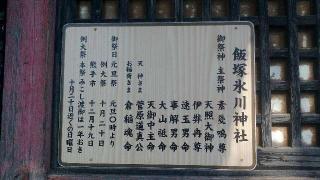 飯塚氷川神社
御祭神 主祭神 素戔嗚尊
天照大御神
伊弉冉尊
速玉男命
事解男命
大山祗命
天御中主命
天神さま 菅原道真公
お稲荷さま 倉稲魂命
御祭日 元旦祭 元旦〇時より
例大祭 十月二十日
熊手市 十二月十九日
例大祭 本祭 みこし渡御は一年おき
十月二十日近くの日曜日